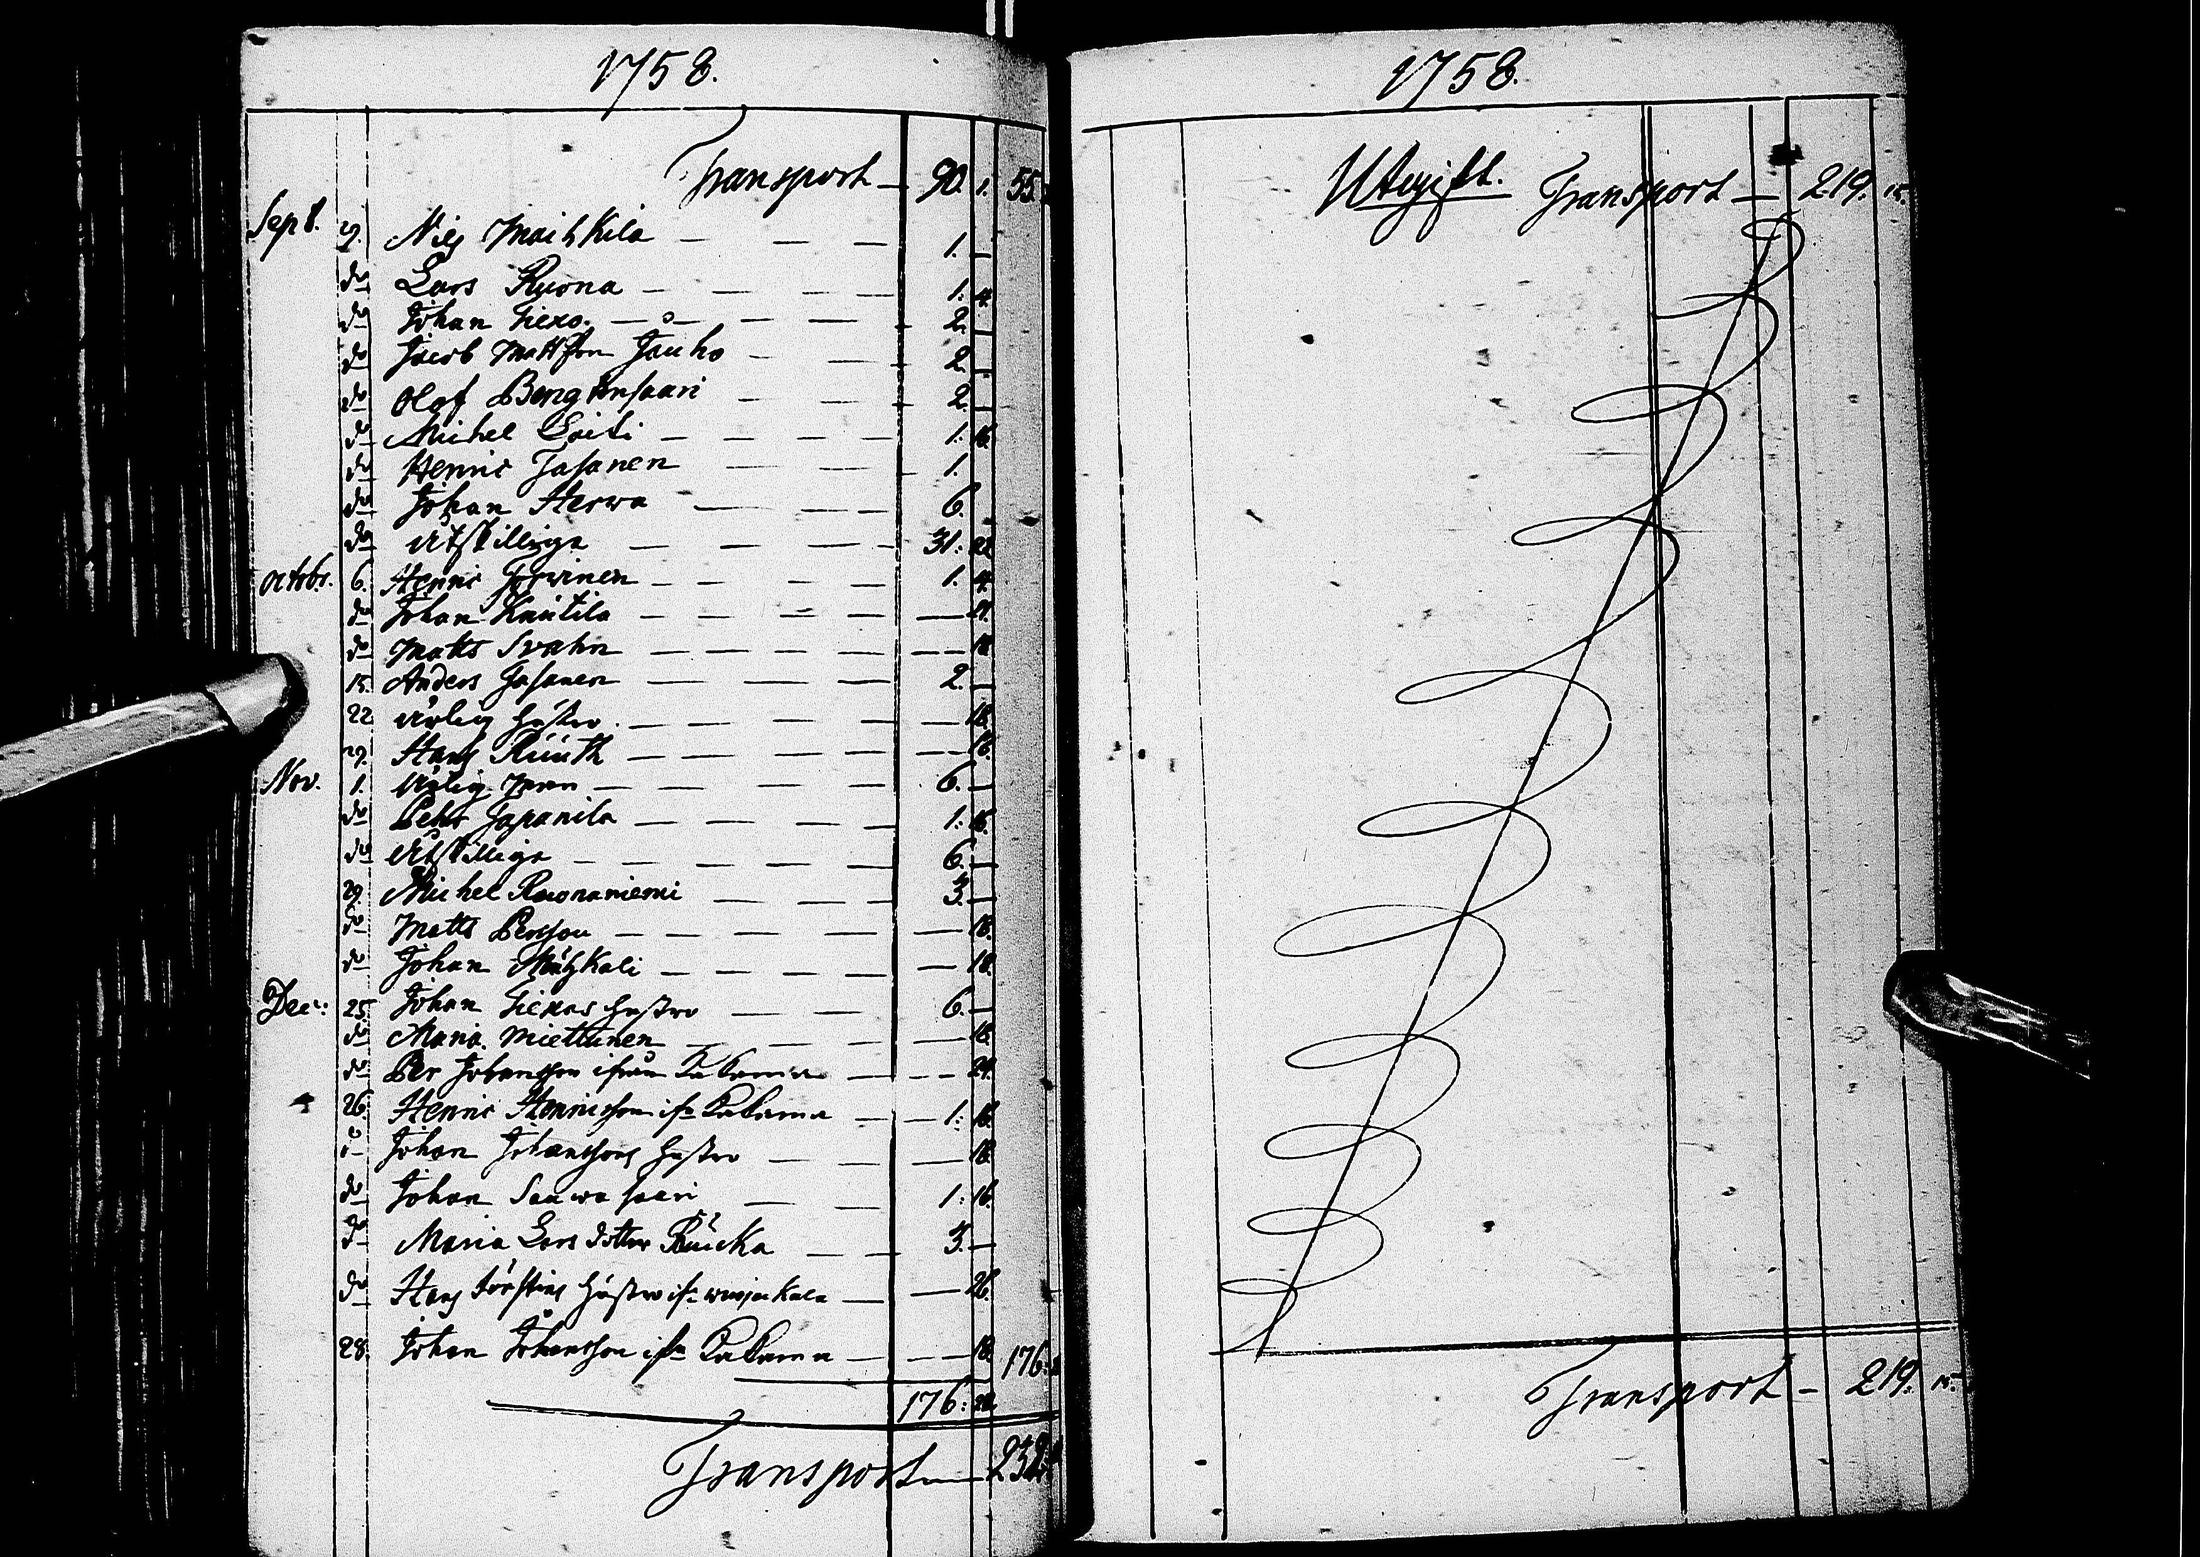 1758.
Transport — 90. 1. 55.
Sept. 29. Nils — — — — 1. —
do Lars Ruona — — — — 1: 4.
do Johan — — — — 2. —
do Jacob Mattsson Jauho — — — 2. —
do Olof — — — 2. —
do Michel — — — — 1: 16.
do Henric Jasanen — — — 1. —
do Johan Herwa — — — 6. —
do Åtskillige — — — — 31: 22.
Octobr. 6. Henric — — — — 1. 4.
do Johan Kautila — — — —
do Matts Svahn — — — — 18.
15. Anders Jasanen — — — — 2. —
22. hustro. — — — — 18.
29. Hans — — — — 16.
Nov. 1. — — — — 6. —
do Pehr Japanila — — — — 1: 16.
do Åtskillige — — — — 6. —
29. Michel Ruonaniemi — — — 3. —
do Matts Persson — — — — 18.
do Johan — — — — 18.
Dec: 25. Johan hustro — — — 6. —
do Maria Miettunen — — — — 18.
do Per Johansson ifrån Kakama — — — 24.
26. Henric Henricsson ifr. Kakama — — 1: 16.
do Johan Johanssons hustro — — — 18.
do Johan Sauwasaari — — 1: 16.
do Maria Lars dotter — — 3. —
do Hans hustro ifr. — — 26.
28. Johan Johansson ifr. Kakama — — — 18. 176:
176: 22.
Transport — 232:
1758.
Utgift. Transport — 219. 15.
Transport — 219: 15.